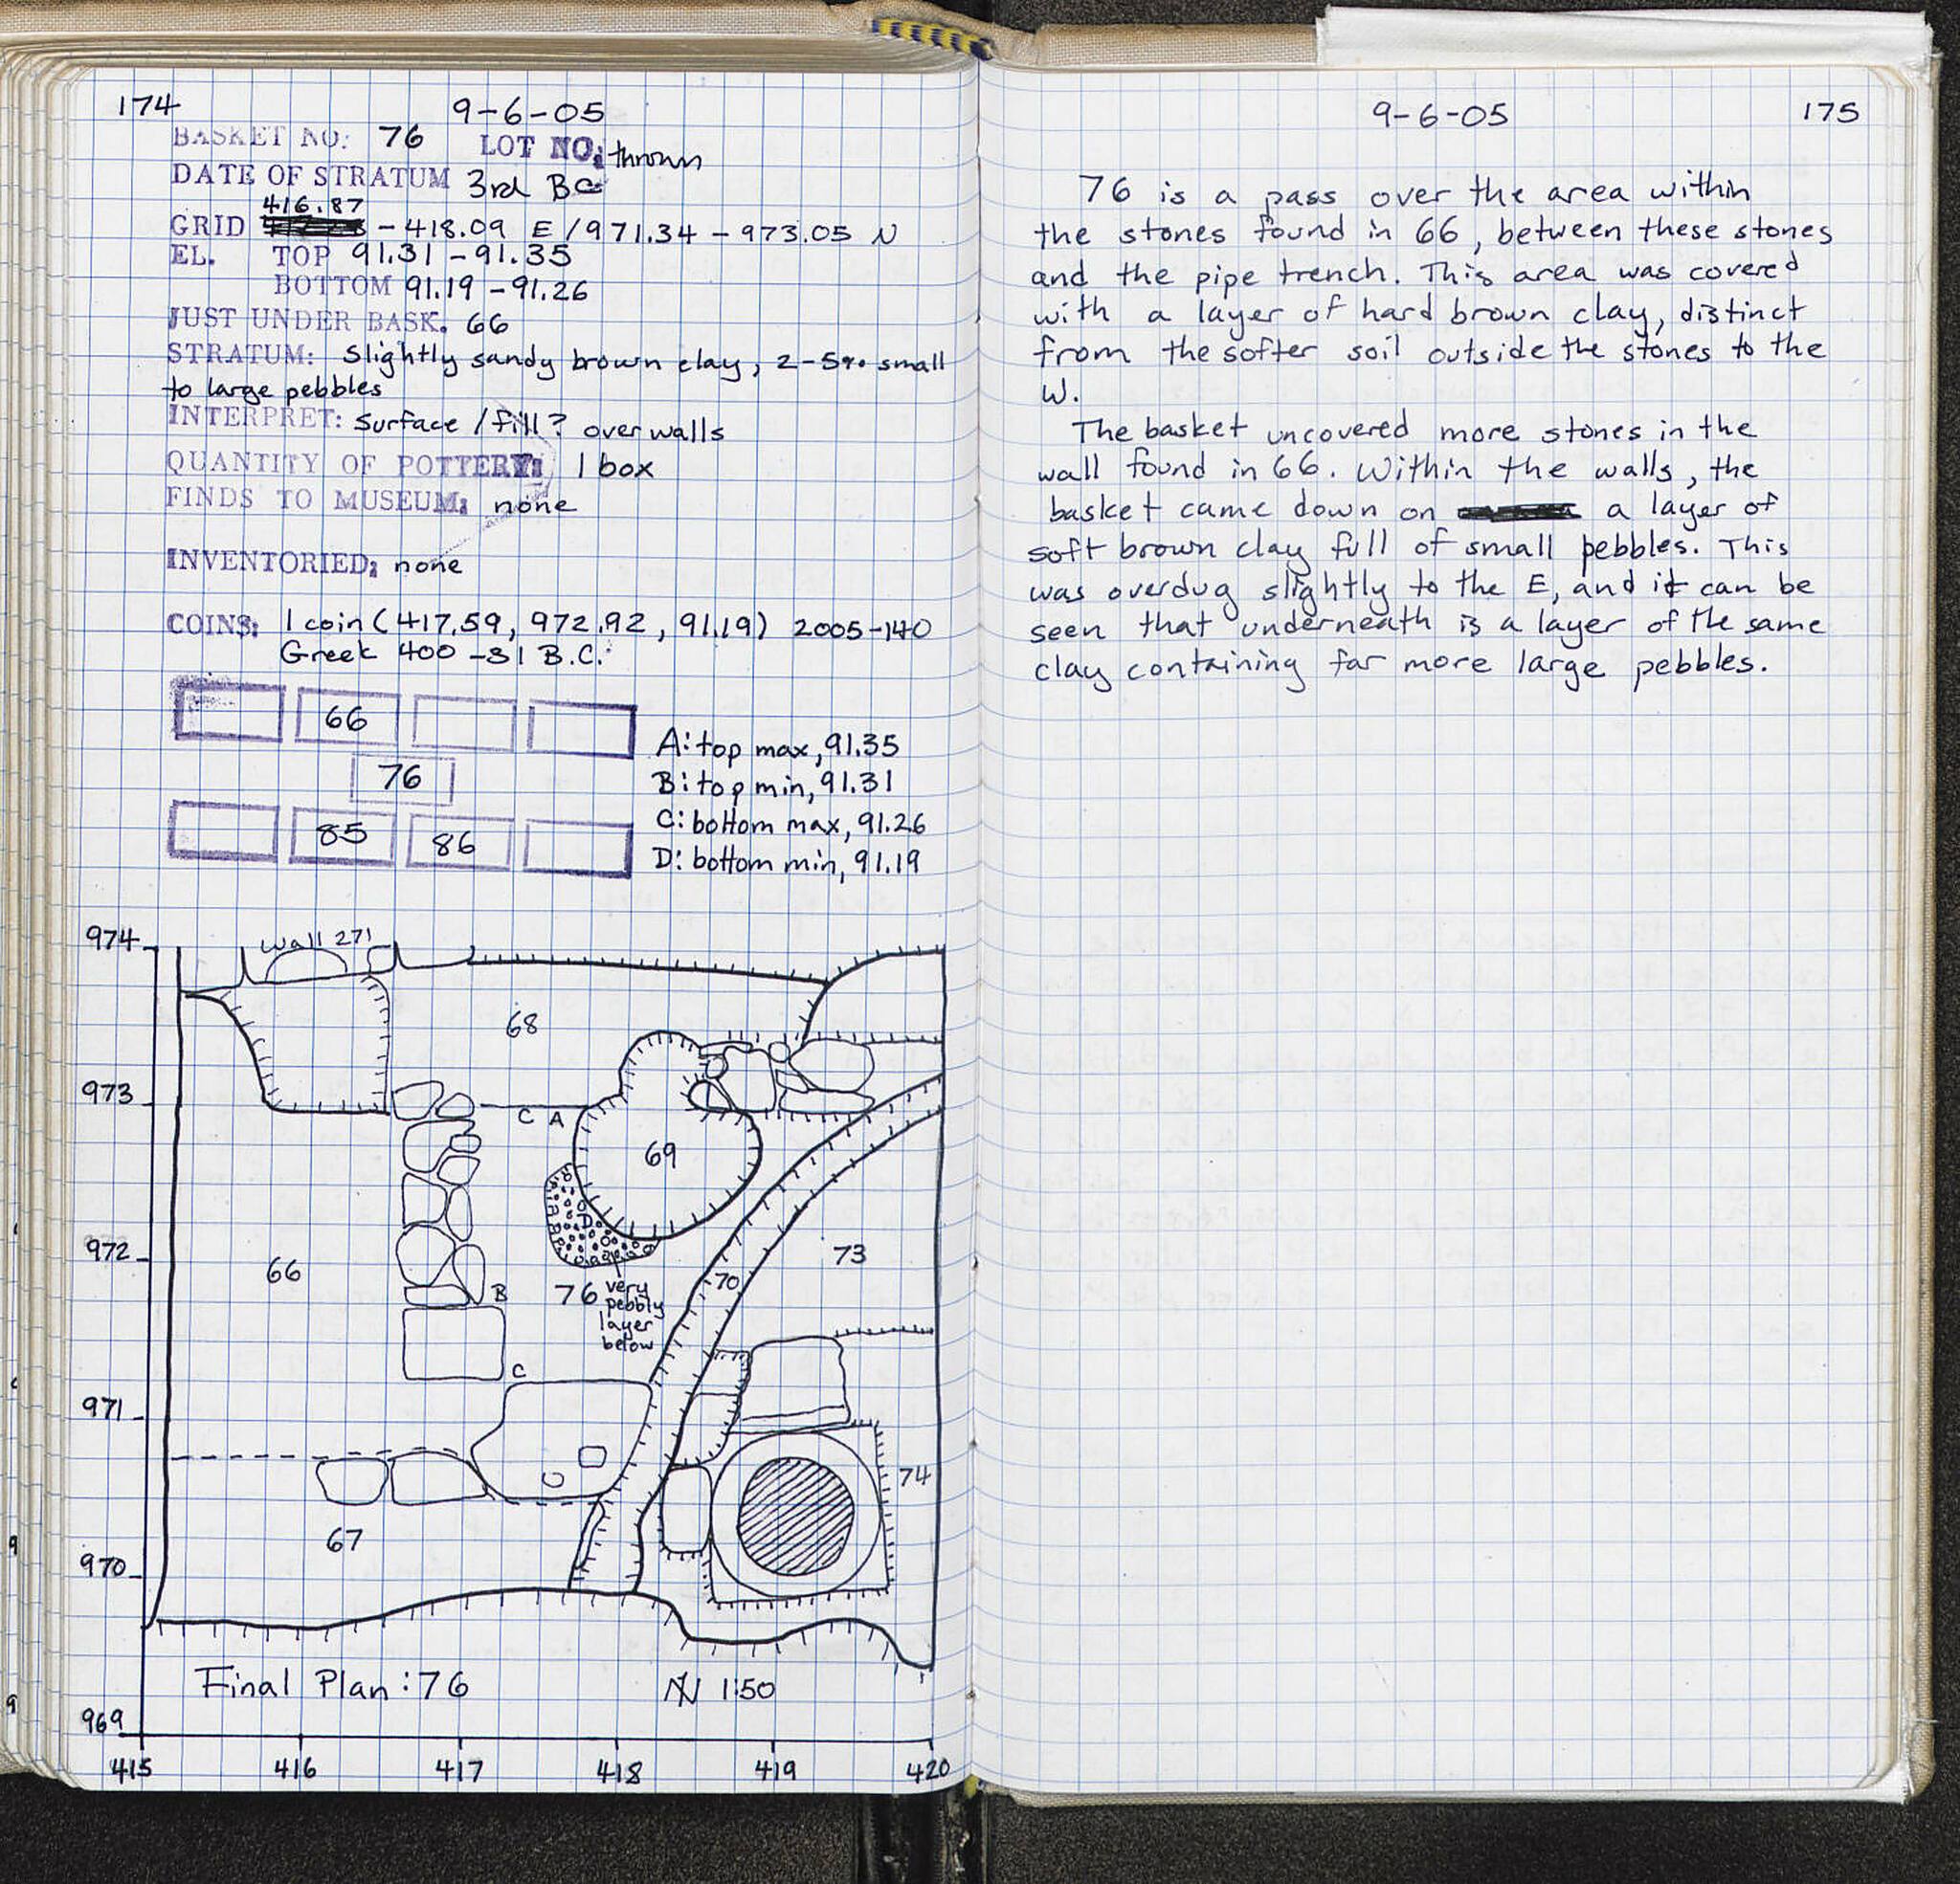 174
9-6-05
BASKET NO: 76 LOT NO: thrown
DATE OF STRATUM 3rd BC
416.87
GRID - 418.09 E / 971.34 - 973.05 N
EL. TOP 91.31 - 91.35
BOTTOM 91.19 - 91.26
JUST UNDER BASK. 66
STRATUM: Slightly sandy brown clay, 2-5% small
to large pebbles
INTERPRET: Surface / fill? over walls
QUANTITY OF POTTERY: 1 box
FINDS TO MUSEUM: none
INVENTORIED: none
COINS: 1 coin (417.59, 972.92, 91.19) 2005-140
Greek 400-31 B.C.
66
76
85 86
A: top max, 91.35
B: top min, 91.31
C: bottom max, 91.26
D: bottom min, 91.19
974
wall 271
68
973
C A
69
D
972
66
B
76 very
pebbly
layer
below
70
73
C
971
74
67
970
Final Plan: 76
N 1:50
969
415 416 417 418 419 420
9-6-05
175
76 is a pass over the area within
the stones found in 66, between these stones
and the pipe trench. This area was covered
with a layer of hard brown clay, distinct
from the softer soil outside the stones to the
W.
The basket uncovered more stones in the
wall found in 66. Within the walls, the
basket came down on a layer of
soft brown clay full of small pebbles. This
was overdug slightly to the E, and it can be
seen that underneath is a layer of the same
clay containing far more large pebbles.